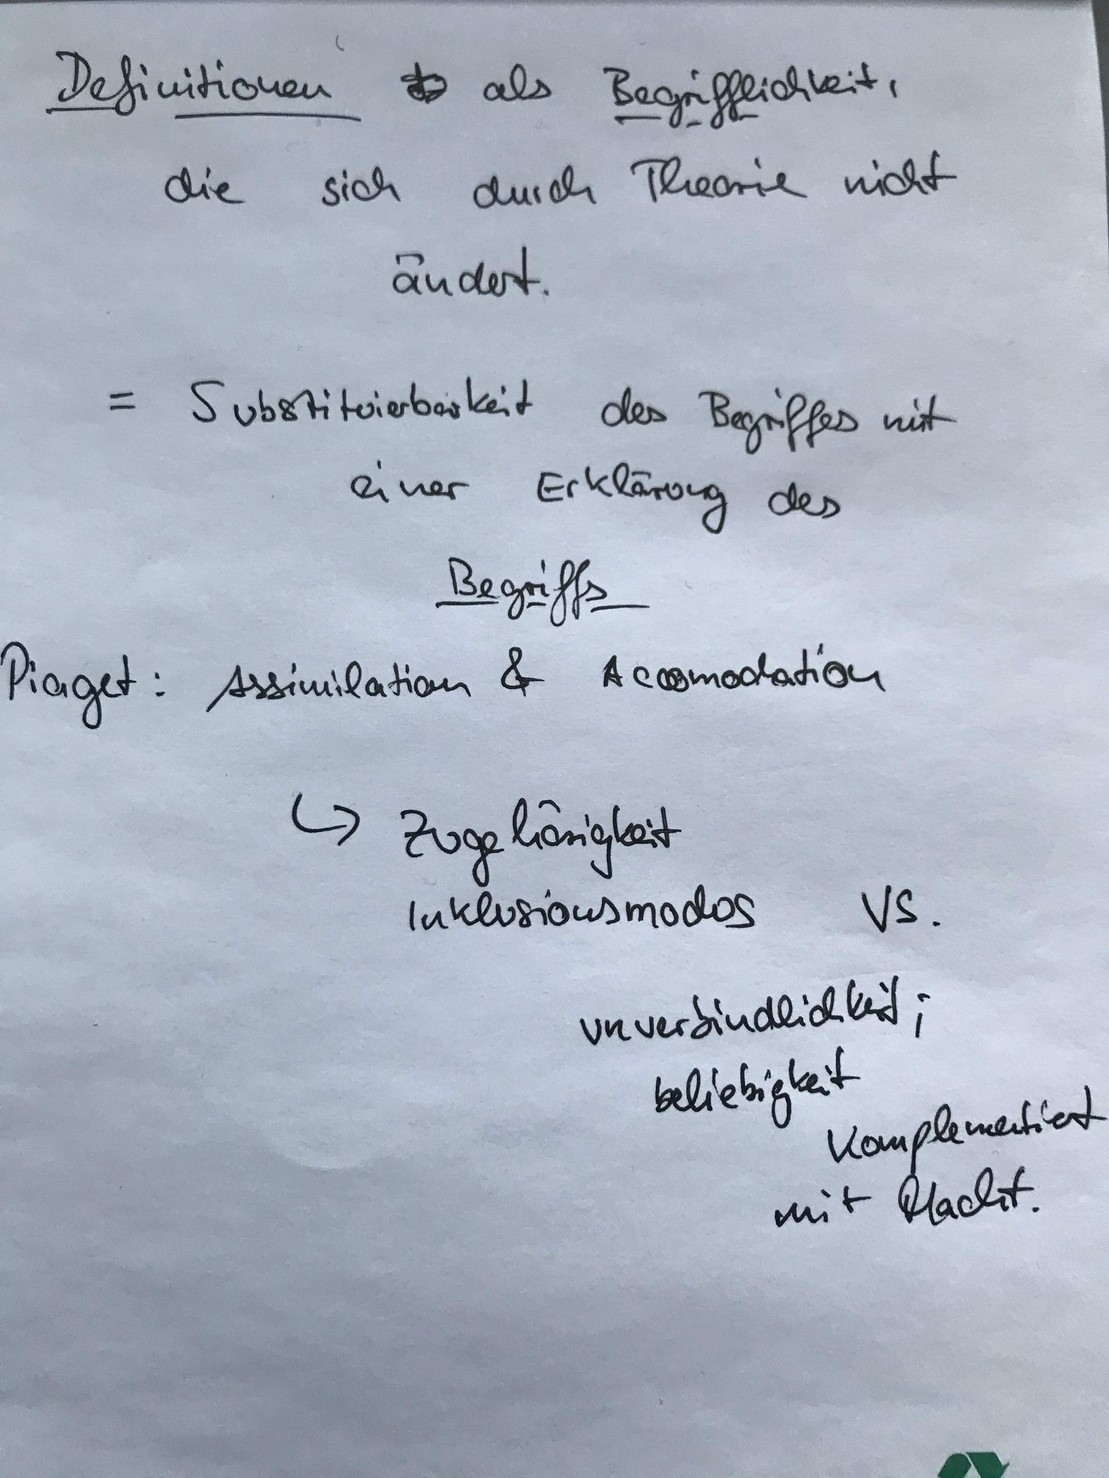 Definitionen als Begrifflichkeit,
die sich durch Theorie nicht
ändert.
= Substituierbarkeit des Begriffes mit
einer Erklärung des
Begriffs
Piaget: Assimilation & Accomodation
↳ Zugehörigkeit
Inklusionsmodus VS.
unverbindlichkeit;
beliebigkeit
Komplementiert
mit Macht.